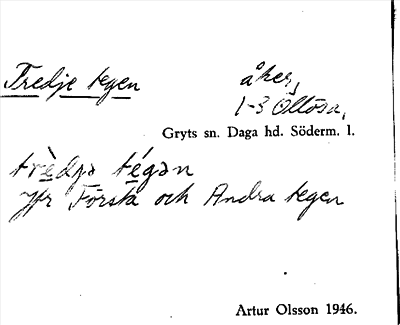 Tredje tegen åker,
1-3 Ottösa,
Gryts sn. Daga hd. Söderm. l.
trèdjə tégən
Jfr Första och Andra tegen
Artur Olsson 1946.